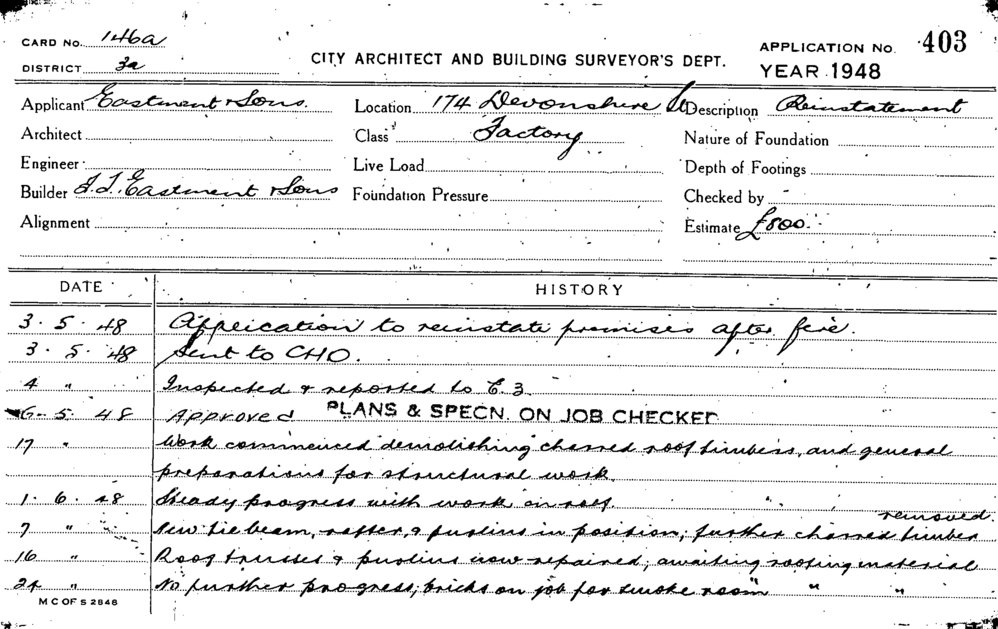 CARD NO. 146a
DISTRICT 3a
CITY ARCHITECT AND BUILDING SURVEYOR'S DEPT.
APPLICATION NO. 403
YEAR 1948
Applicant Eastment & Sons. Location 174 Devonshire St Description Reinstatement
Architect Class Factory Nature of Foundation
Engineer Live Load Depth of Footings
Builder Eastment & Sons Foundation Pressure Checked by -
Alignment Estimate £800.
DATE HISTORY
3.5.48 Application to reinstate premises after fire.
3.5.48 Sent to CHO.
4 " Inspected & reported to C.3.
6-5-48 Approved PLANS & SPECN. ON JOB CHECKED
17 " Work commenced demolishing charred roof timbers, and general
preparations for structural work.
1.6.48 Steady progress with work on roof.
removed.
7 " New tie beam, rafter, & purlins in position; further charred timber
16 " Roof trusses & purlins now repaired; awaiting roofing material
24 " No further progress; bricks on job for smoke room " " "
M C OF S 2848